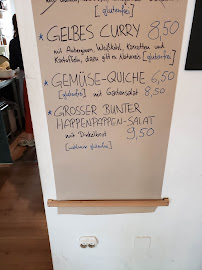 [glutenfrei]
* GELBES CURRY 8,50
mit Auberginen, Weißkohl, Karotten und
Kartoffeln, dazu gibt es Naturreis [glutenfrei]
* GEMÜSE-QUICHE 6,50
[glutenfrei] mit Gartensalat 8,50
* GROSSER BUNTER
HAPPENPAPPEN-SALAT
mit Dinkelbrot 9,50
glutenfrei]